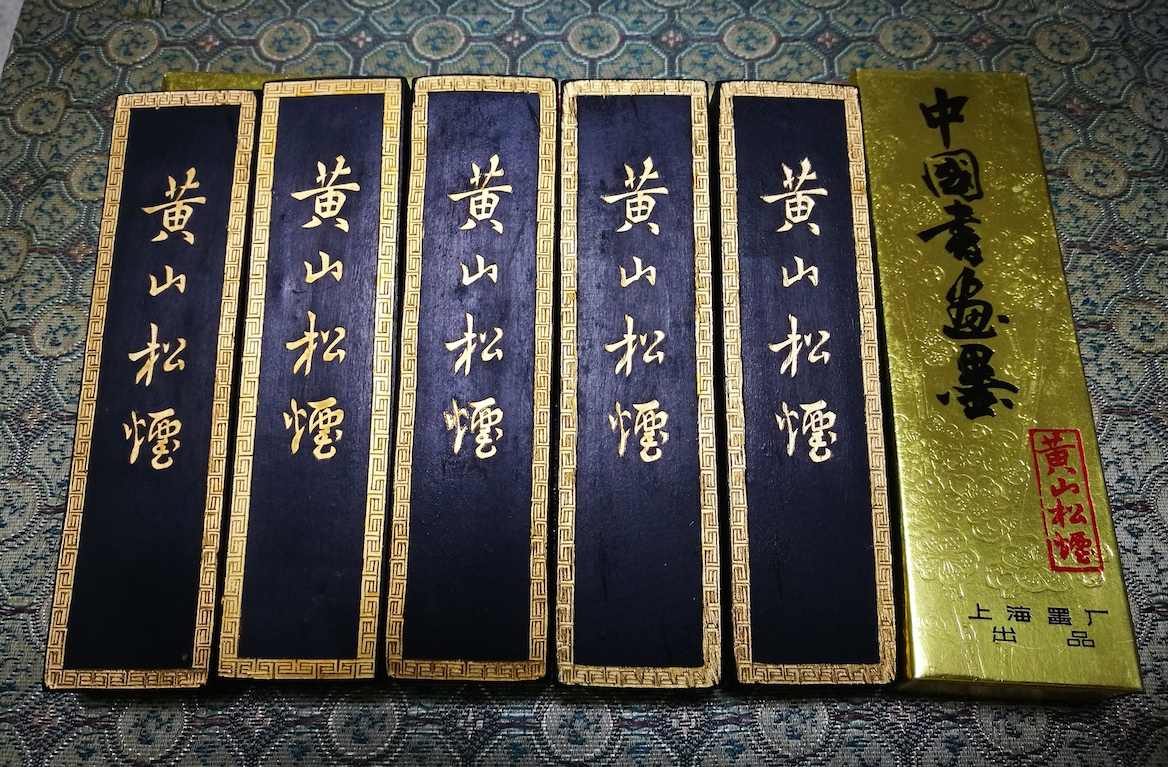 黄山松煙
黄山松煙
黄山松煙
黄山松煙
黄山松煙
中國書畫墨
黄山松煙
上海墨厂
出品